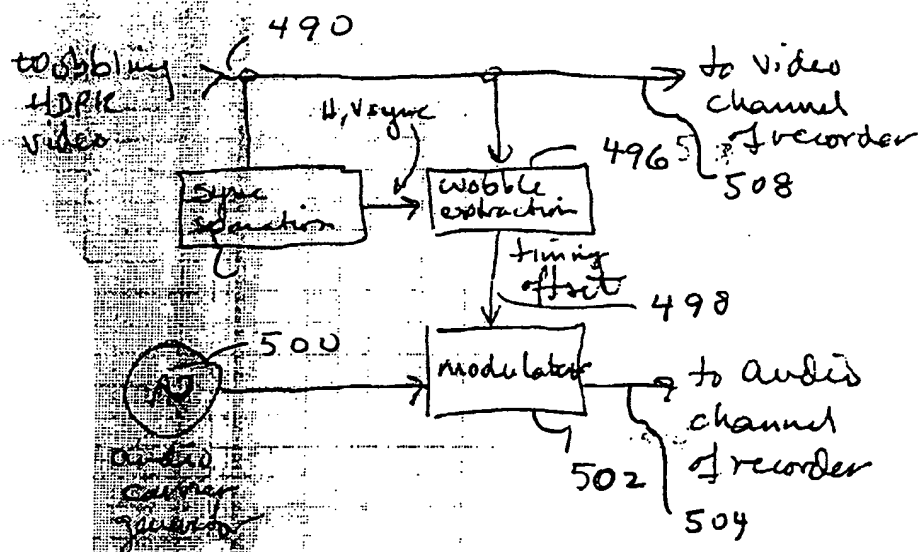 490
wobbling
HDPR
video
to video
channel
of recorder
508
H, Vsync
sync
separation
wobble
extraction
496
timing
offset
498
500
modulator
502
to audio
channel
of recorder
504
audio
carrier
generator